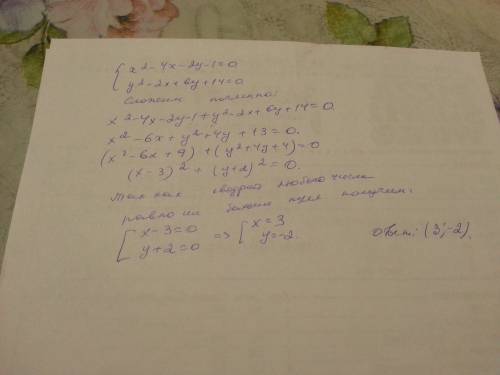 { x² - 4x - 2y - 1 = 0
y² - 2x + 6y + 14 = 0
Сложим почленно:
x² - 4x - 2y - 1 + y² - 2x + 6y + 14 = 0
x² - 6x + y² + 4y + 13 = 0.
(x² - 6x + 9) + (y² + 4y + 4) = 0
(x - 3)² + (y + 2)² = 0.
Так как квадрат любого числа
равно или больше нуля получаем:
[ x - 3 = 0 => [ x = 3
y + 2 = 0 y = -2
Ответ: (3; -2).